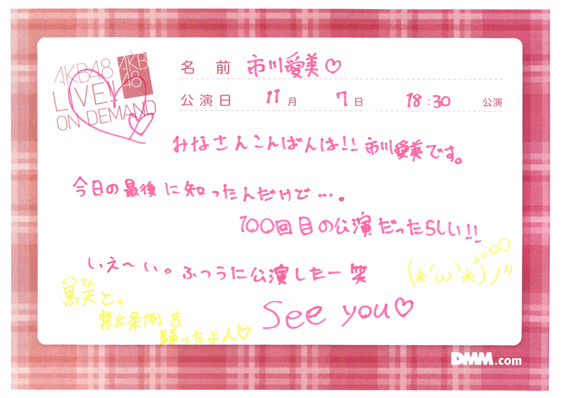 AKB48
AKB
48
LIVE!!
ON DEMAND
名前 市川愛美♡
公演日 11月 7日 18:30 公演
みなさんこんばんは!! 市川愛美です。
今日の最後に知ったんだけど…。
100回目の公演だったらしい!!
いえ〜い。ふつうに公演したー笑
(*´ω`*)ノ"
と。
禁止条例を
踊ったよん♡
See you♡
DMM.com